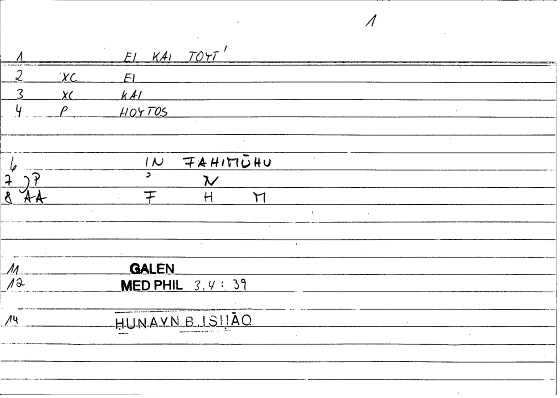 1
1 EI KAI TOYT'
2 XC EI
3 XC KAI
4 P HOYTOS
6 IN FAHIMŪHU
7 P ʾ N
8 AA F H M
11 GALEN
12 MED PHIL 3.4 : 39
14 HUNAYN B. ISHĀQ